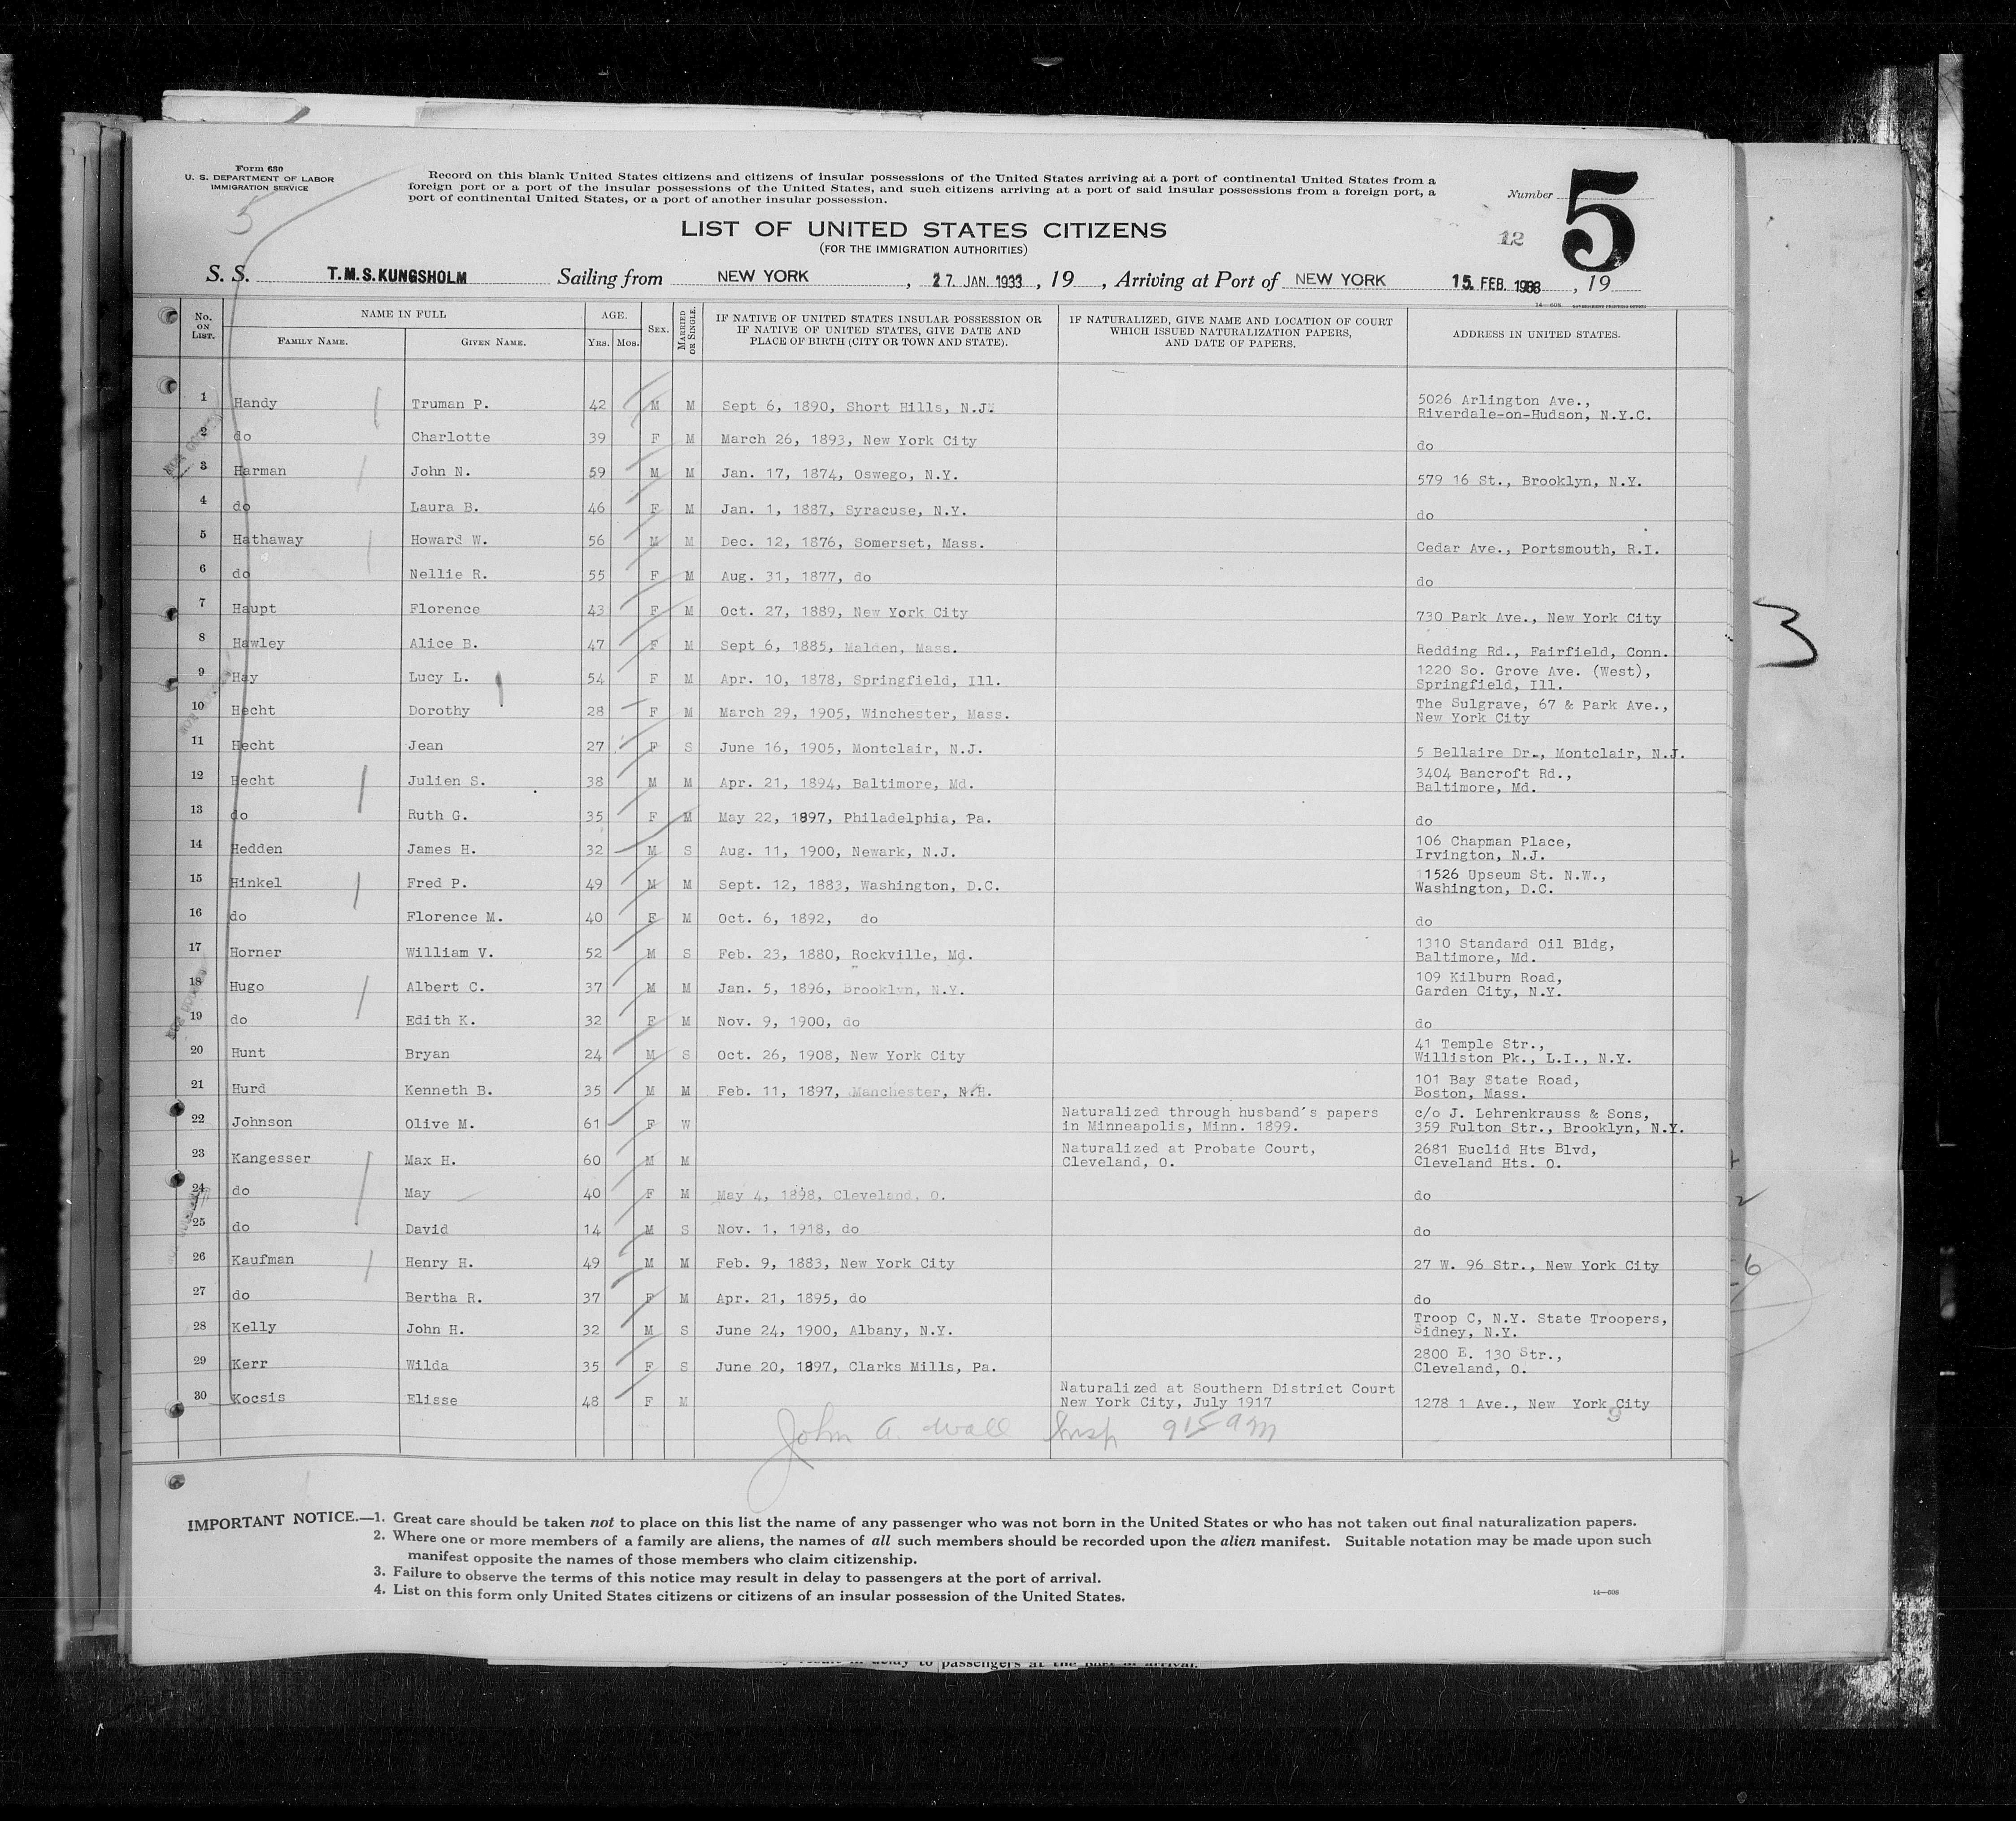 Form 630
U. S. DEPARTMENT OF LABOR
IMMIGRATION SERVICE
Record on this blank United States citizens and citizens of insular possessions of the United States arriving at a port of continental United States from a
foreign port or a port of the insular possessions of the United States, and such citizens arriving at a port of said insular possessions from a foreign port, a
port of continental United States, or a port of another insular possession.
Number 5
5
12
LIST OF UNITED STATES CITIZENS
(FOR THE IMMIGRATION AUTHORITIES)
S. S. T.M.S.KUNGSHOLM Sailing from NEW YORK, 27. JAN. 1933, 19 , Arriving at Port of NEW YORK 15. FEB. 1933, 19
14—608 GOVERNMENT PRINTING OFFICE
No. ON LIST. NAME IN FULL FAMILY NAME. GIVEN NAME. AGE. Yrs. Mos. SEX. MARRIED OR SINGLE. IF NATIVE OF UNITED STATES INSULAR POSSESSION OR IF NATIVE OF UNITED STATES, GIVE DATE AND PLACE OF BIRTH (CITY OR TOWN AND STATE). IF NATURALIZED, GIVE NAME AND LOCATION OF COURT WHICH ISSUED NATURALIZATION PAPERS, AND DATE OF PAPERS. ADDRESS IN UNITED STATES.
1 Handy Truman P. 42 M M Sept 6, 1890, Short Hills, N.J. 5026 Arlington Ave., Riverdale-on-Hudson, N.Y.C.
2 do Charlotte 39 F M March 26, 1893, New York City do
3 Harman John N. 59 M M Jan. 17, 1874, Oswego, N.Y. 579 16 St., Brooklyn, N.Y.
4 do Laura B. 46 F M Jan. 1, 1887, Syracuse, N.Y. do
5 Hathaway Howard W. 56 M M Dec. 12, 1876, Somerset, Mass. Cedar Ave., Portsmouth, R.I.
6 do Nellie R. 55 F M Aug. 31, 1877, do do
7 Haupt Florence 43 F M Oct. 27, 1889, New York City 730 Park Ave., New York City
8 Hawley Alice B. 47 F M Sept 6, 1885, Malden, Mass. Redding Rd., Fairfield, Conn.
9 Hay Lucy L. 54 F M Apr. 10, 1878, Springfield, Ill. 1220 So. Grove Ave. (West), Springfield, Ill.
10 Hecht Dorothy 28 F M March 29, 1905, Winchester, Mass. The Sulgrave, 67 & Park Ave., New York City
11 Hecht Jean 27 F S June 16, 1905, Montclair, N.J. 5 Bellaire Dr., Montclair, N.J.
12 Hecht Julien S. 38 M M Apr. 21, 1894, Baltimore, Md. 3404 Bancroft Rd., Baltimore, Md.
13 do Ruth G. 35 F M May 22, 1897, Philadelphia, Pa. do
14 Hedden James H. 32 M S Aug. 11, 1900, Newark, N.J. 106 Chapman Place, Irvington, N.J.
15 Hinkel Fred P. 49 M M Sept. 12, 1883, Washington, D.C. 11526 Upseum St. N.W., Washington, D.C.
16 do Florence M. 40 F M Oct. 6, 1892, do do
17 Horner William V. 52 M S Feb. 23, 1880, Rockville, Md. 1310 Standard Oil Bldg, Baltimore, Md.
18 Hugo Albert C. 37 M M Jan. 5, 1896, Brooklyn, N.Y. 109 Kilburn Road, Garden City, N.Y.
19 do Edith K. 32 F M Nov. 9, 1900, do do
20 Hunt Bryan 24 M S Oct. 26, 1908, New York City 41 Temple Str., Williston Pk., L.I., N.Y.
21 Hurd Kenneth B. 35 M M Feb. 11, 1897, Manchester, N.H. 101 Bay State Road, Boston, Mass.
22 Johnson Olive M. 61 F W Naturalized through husband's papers in Minneapolis, Minn. 1899. c/o J. Lehrenkrauss & Sons, 359 Fulton Str., Brooklyn, N.Y.
23 Kangesser Max H. 60 M M Naturalized at Probate Court, Cleveland, O. 2681 Euclid Hts Blvd, Cleveland Hts. O.
24 do May 40 F M May 4, 1898, Cleveland, O. do
25 do David 14 M S Nov. 1, 1918, do do
26 Kaufman Henry H. 49 M M Feb. 9, 1883, New York City 27 W. 96 Str., New York City
27 do Bertha R. 37 F M Apr. 21, 1895, do do
28 Kelly John H. 32 M S June 24, 1900, Albany, N.Y. Troop C, N.Y. State Troopers, Sidney, N.Y.
29 Kerr Wilda 35 F S June 20, 1897, Clarks Mills, Pa. 2800 E. 130 Str., Cleveland, O.
30 Kocsis Elisse 48 F M Naturalized at Southern District Court New York City, July 1917 1278 1 Ave., New York City
John A. Wall Insp 915 am
3
6
IMPORTANT NOTICE.—1. Great care should be taken not to place on this list the name of any passenger who was not born in the United States or who has not taken out final naturalization papers.
2. Where one or more members of a family are aliens, the names of all such members should be recorded upon the alien manifest. Suitable notation may be made upon such
manifest opposite the names of those members who claim citizenship.
3. Failure to observe the terms of this notice may result in delay to passengers at the port of arrival.
4. List on this form only United States citizens or citizens of an insular possession of the United States.
14—608
may result in delay to passengers at the port of arrival.